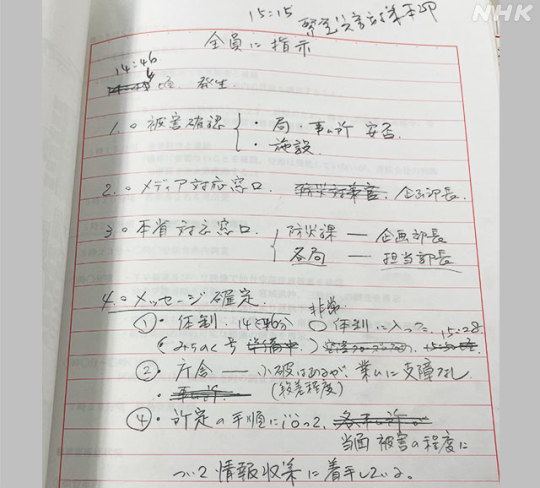 NHK
15:15
全員に指示
14:46
頃 発生
1.○被害確認 ・局・事ム所 安否
・施設
2.○メディア対応窓口 防災対策官、企画部長
3.○本省対応窓口 防災課 ― 企画部長
各局 ― 担当部長
4.○メッセージ確定 非常
①・体制 14時46分 ○体制に入った 15:28
(みちのく号 準備中)
②・庁舎 ― 小破はあるが、業ムに支障なし
・事ム所 (段差程度)
④・所定の手順に沿って、各事ム所
当面 被害の程度に
ついて情報収集に着手している。